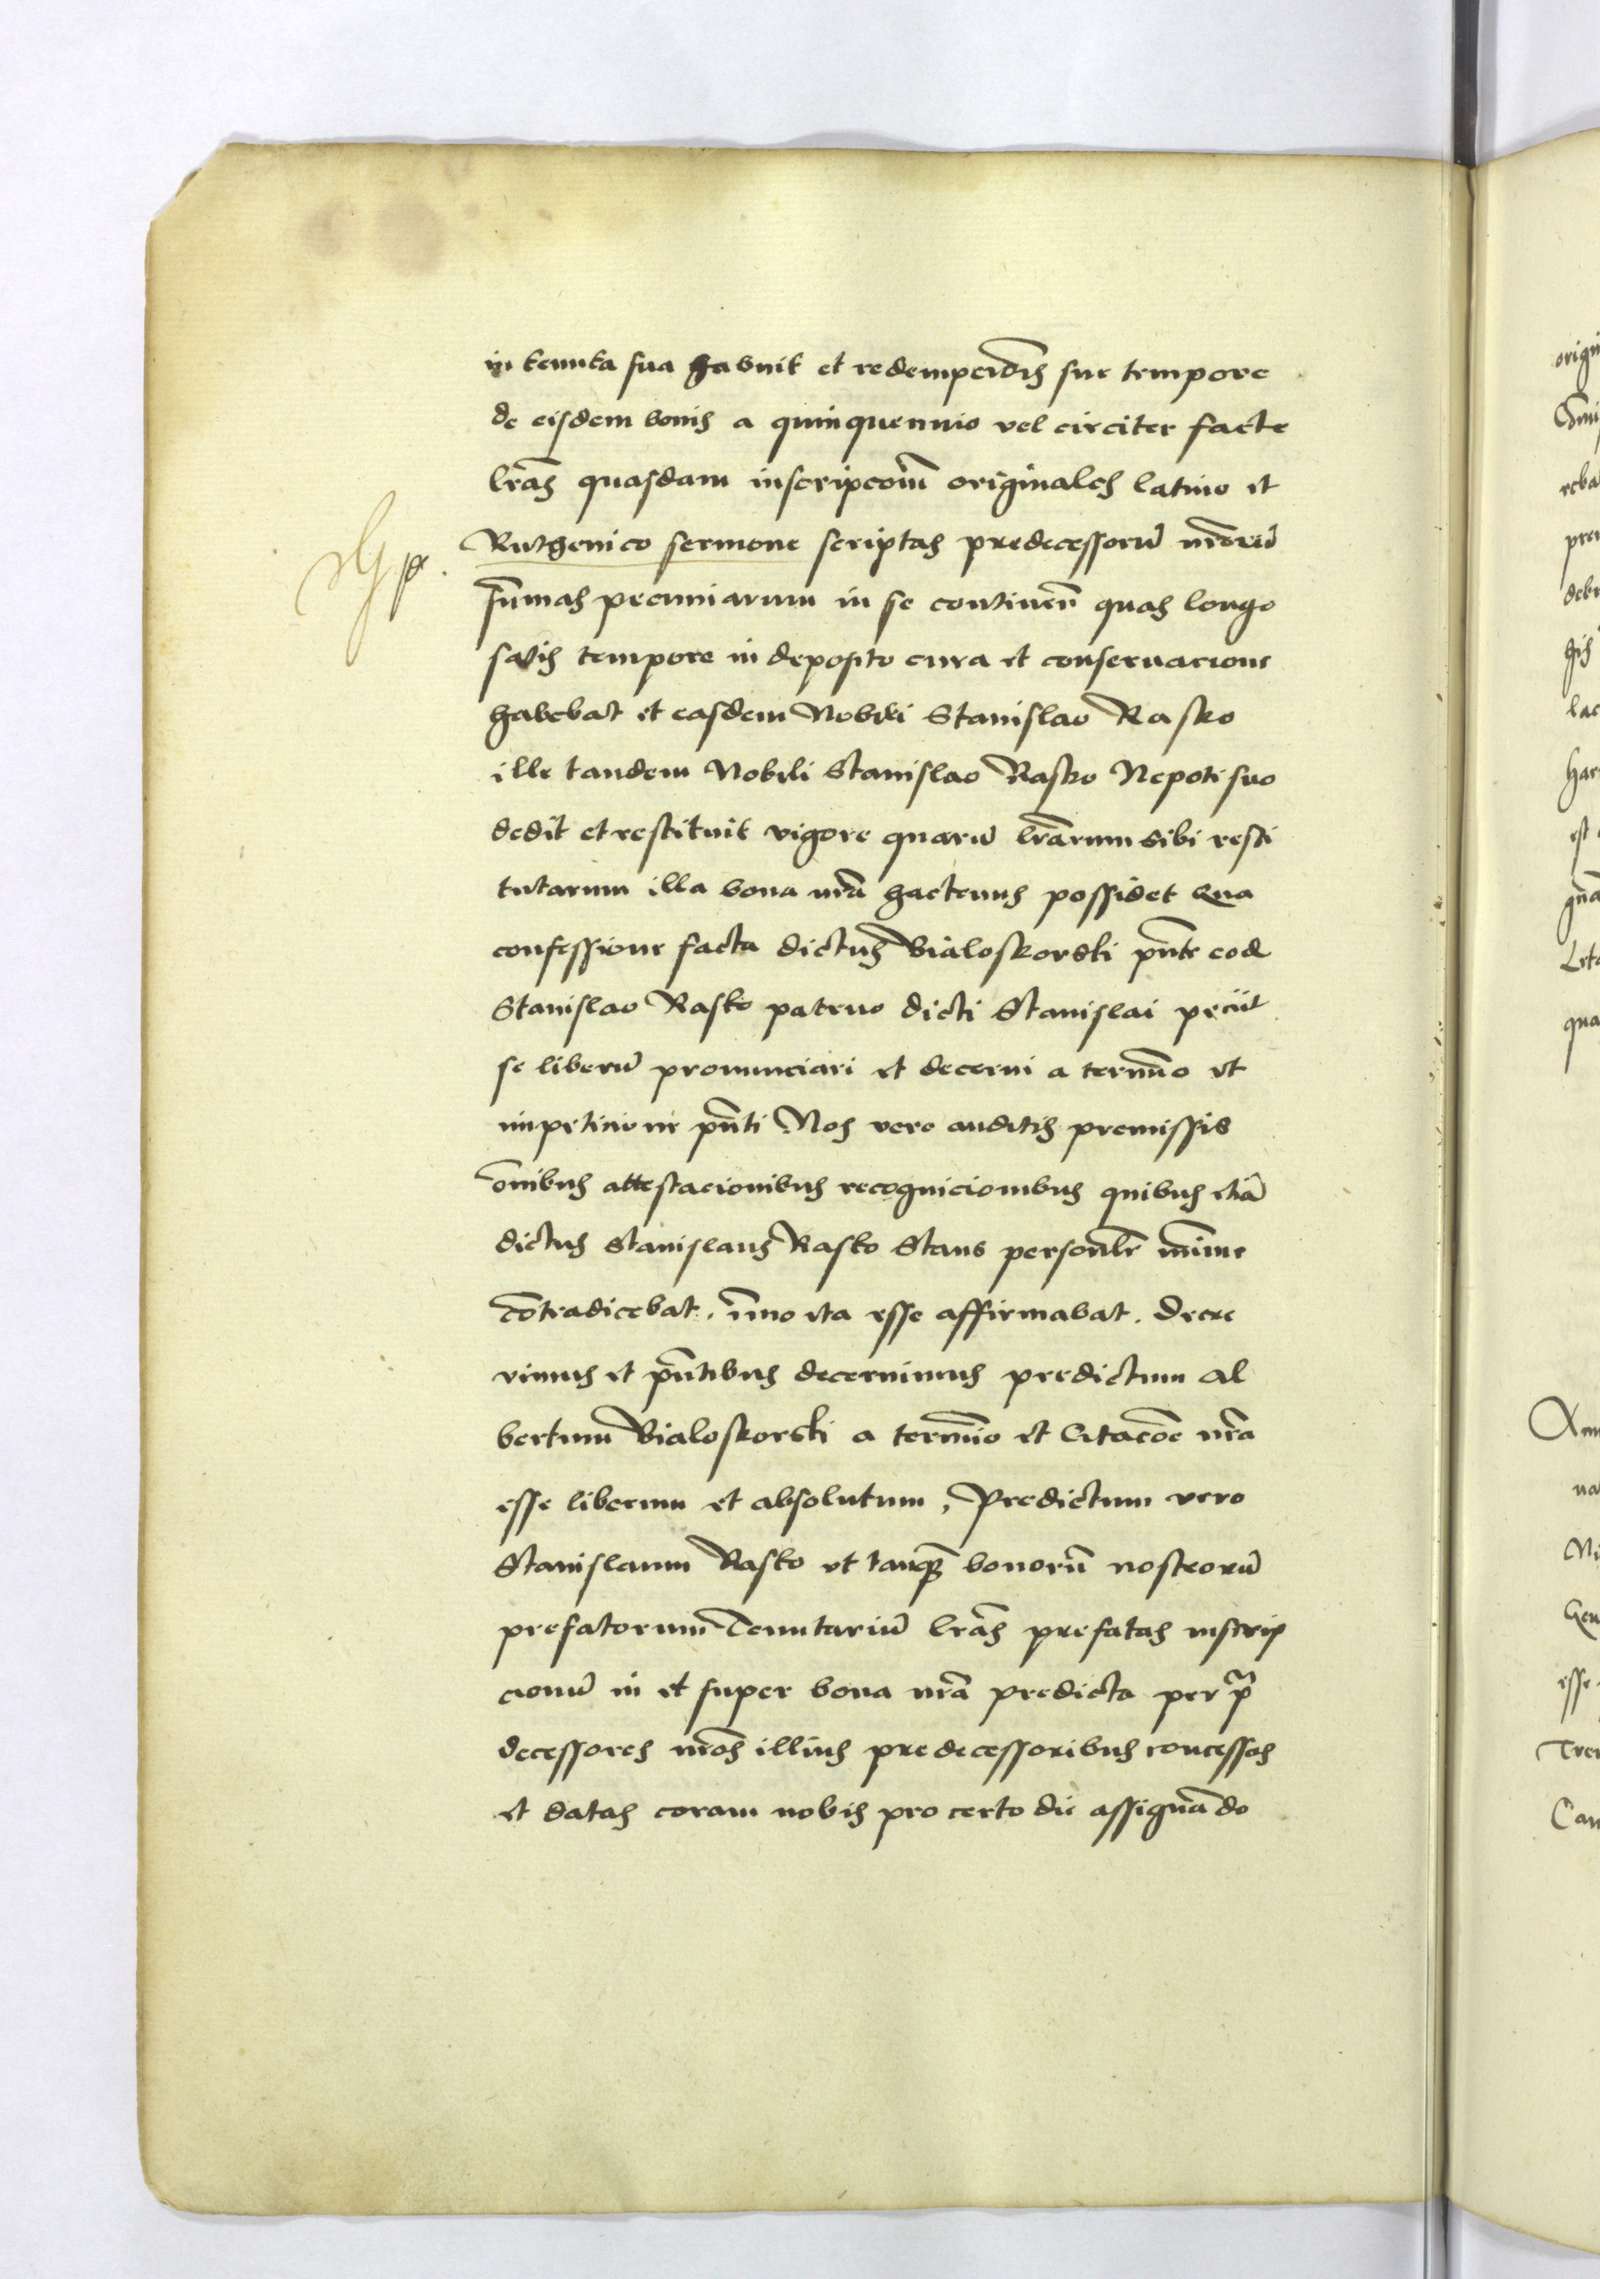 in tenuta sua habuit et redempcio͞is sue tempore
de eisdem bonis a quinquennio vel circiter facte
lr͞as quasdam inscripcom͞ originales latino et
Ruthenico sermone scriptas predecessoru͞ nr͞oru͞
su͞mas pecuniarum in se continen͞ quas longo
satis tempore in deposito cura et conseruacione
habebat et easdem Nobili Stanislao Rasko
ille tandem Nobili Stanislao Rasko Nepoti suo
dedit et restituit vigore quaru͞ lr͞arum sibi resti
tutarum illa bona nr͞a hactenus possidet Qua
confessione facta dictus Bialoskorski pn͞te eod
Stanislao Rasko patruo dicti Stanislai peciit
se liberu͞ pronunciari et decerni a termi͞o et
impeticione pn͞ti Nos vero auditis premissis
om͞ibus attestacionibus recognicionibus quibus etia͞
dictus Stanislaus Rasko Stans personalr͞ mi͞ime
co͞tradicebat. i͞mo ita esse affirmabat. Decre
vimus et pn͞tibus decernimus predictum Al
bertum Bialoskorski a termi͞o et Citaco͞e nr͞a
esse liberum et absolutum, Predictum vero
Stanislaum Rasko vt tanq͞ bonoru͞ nostroru͞
prefatorum Tenutariu͞ lr͞as prefatas inscrip
cionu͞ in et super bona nr͞a predicta per p͞
decessores nr͞os illius predecessoribus concessas
et datas coram nobis pro certo die assigna͞do